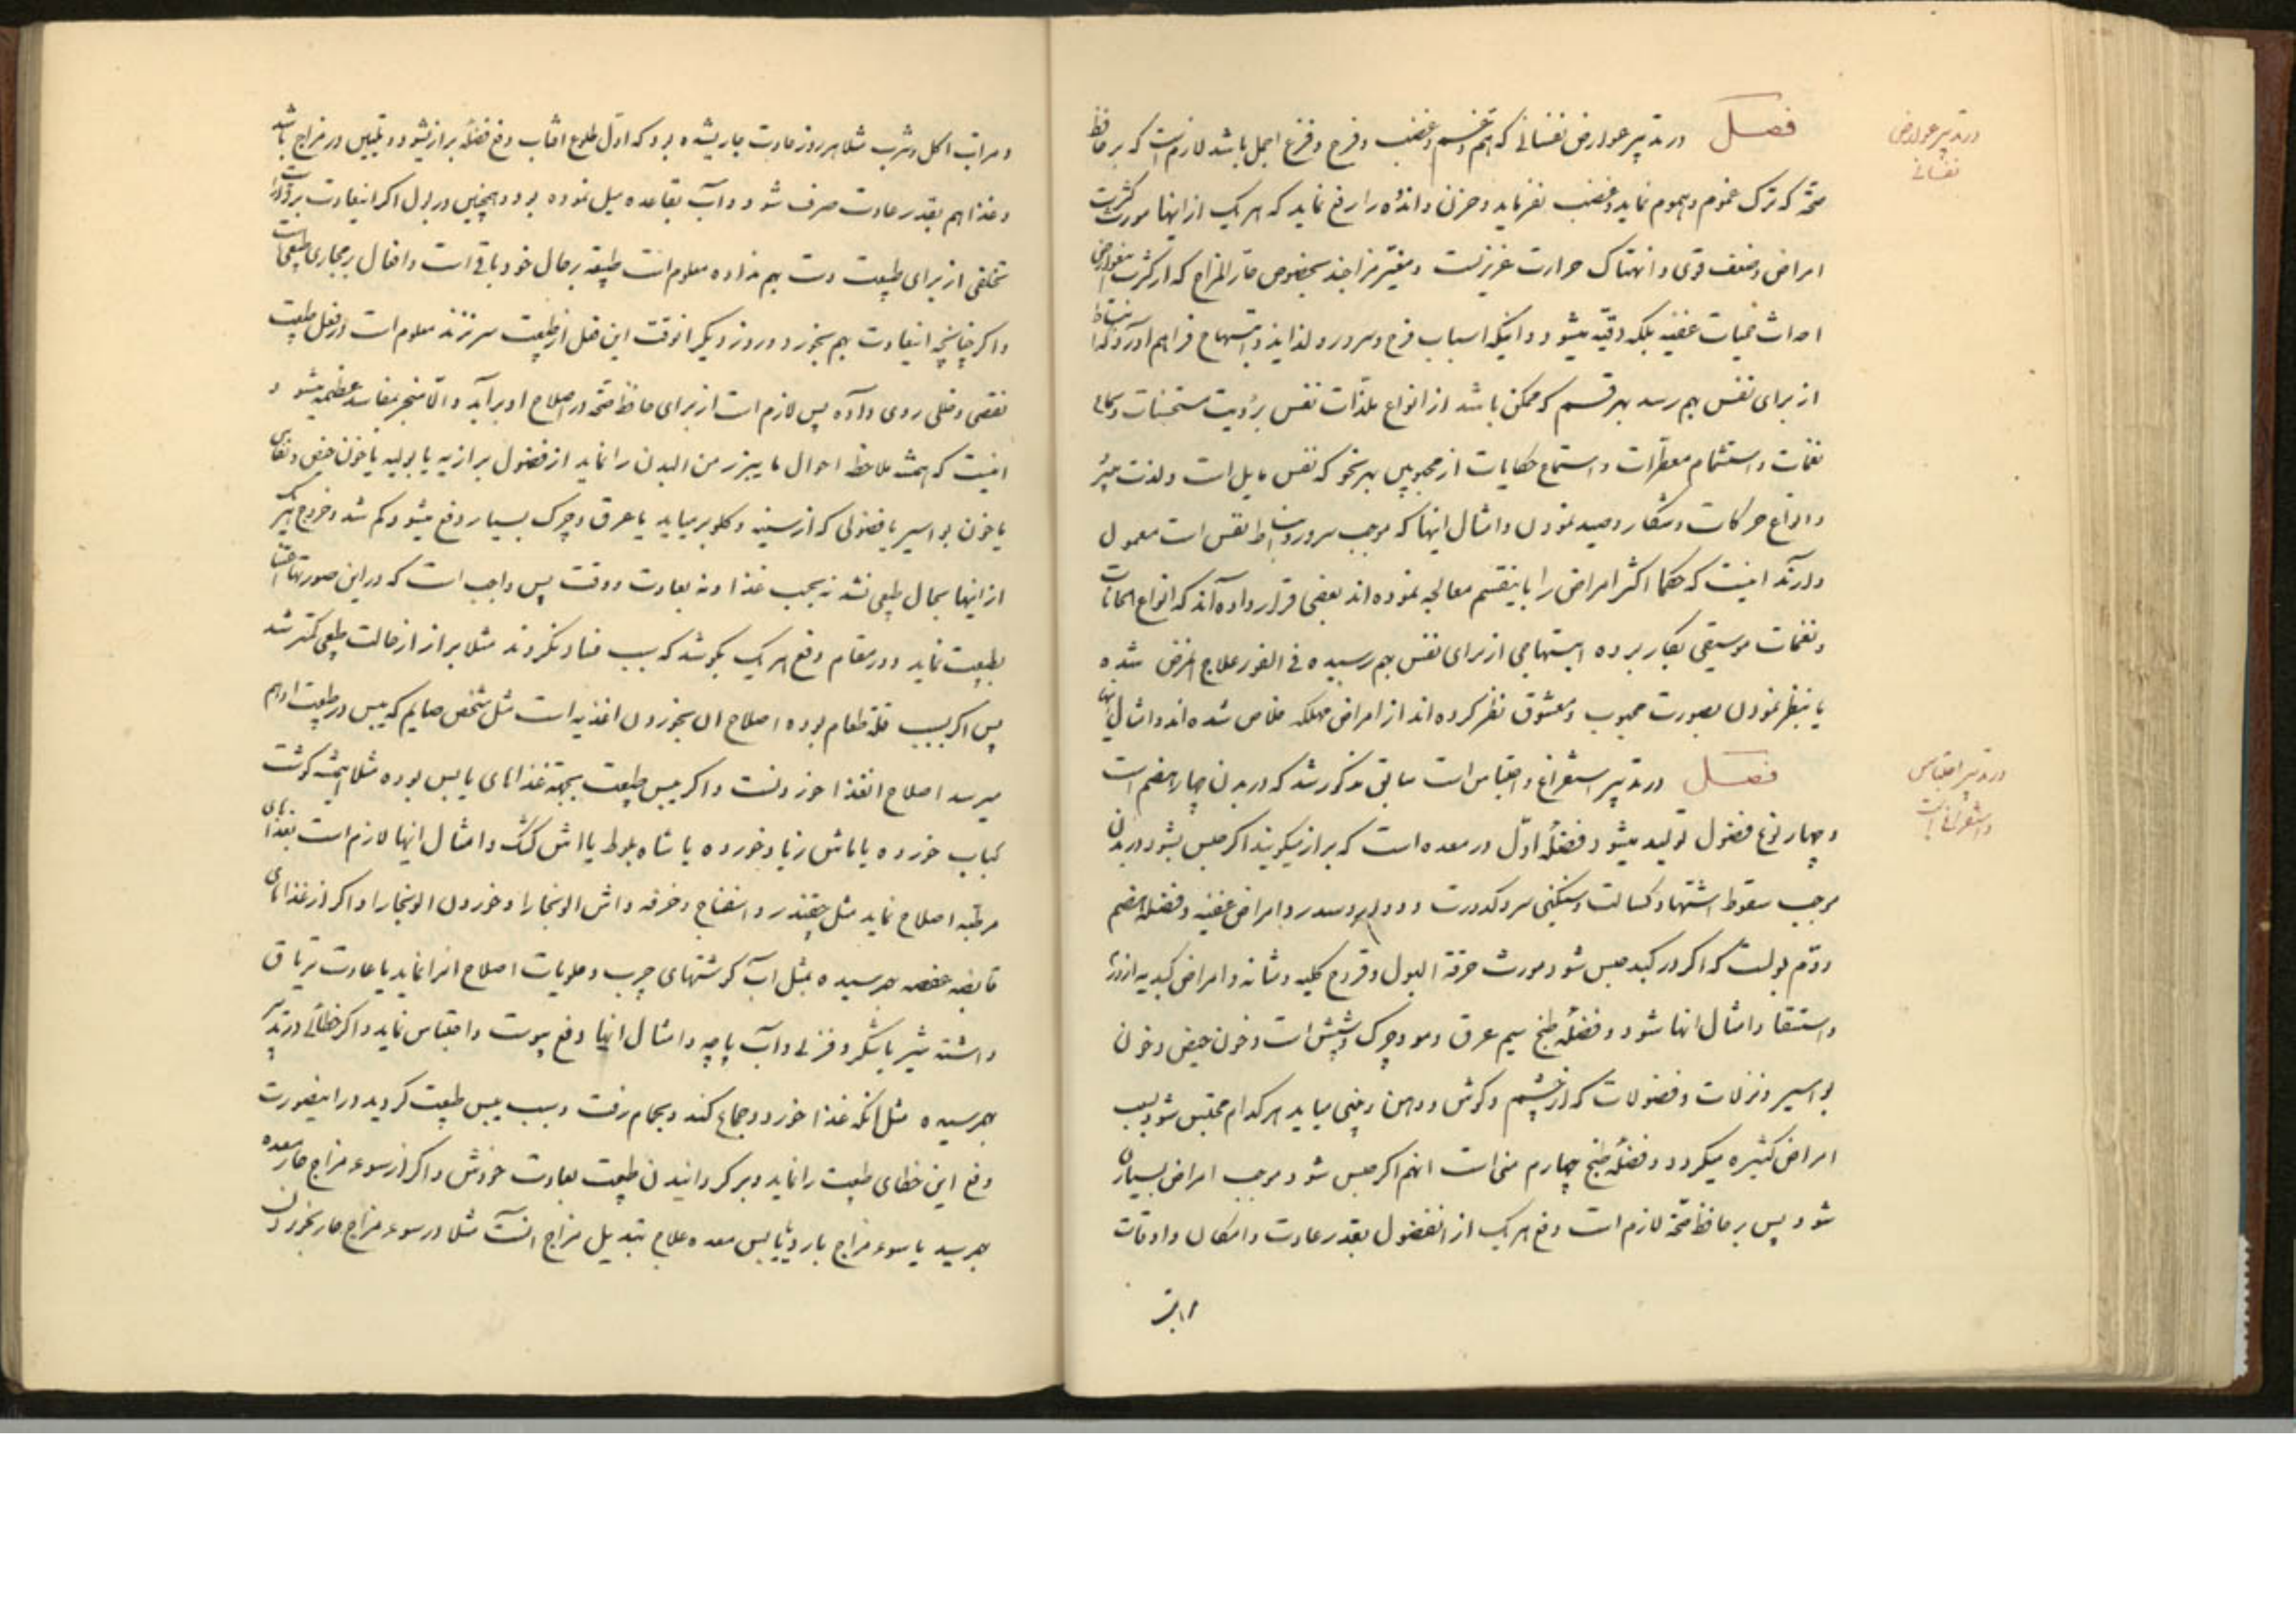 در تدبیر عوارض
نفسانی
فصل در تدبیر عوارض نفسانی که هم و غم و غضب و فرح و فزع اجمل باشد لازم است که بر حافظ
صحة که ترک غموم و هموم نماید و غضب نفرماید و حزن و اندوه را رفع نماید که هر یک از اینها مورث کثرت
امراض و ضعف قوی و انهتاک حرارت غریزیست و مغیّر مزاجند بخصوص حار المزاج که از کثرت
احداث حمیات عفنیه بلکه دقیّه میشود و اینکه اسباب فرح و سرور و لذایذ و ابتهاج فراهم آورد که
از برای نفس بهم رسد بهر قسم که ممکن باشد از انواع ملذّات نفس برؤیت مستحسنات و
نغمات و استشمام معطّرات و استماع حکایات از محبوبین بهر نحو که نفس مایل است و لذت میبرد
و انواع حرکات و شکار و صید نمودن و امثال اینها که موجب سرور و نشاط نفس است معمول
دارند اینست که حکما اکثر امراض را باینقسم معالجه نموده اند بعضی قرار داده اند که انواع الحانات
و نغمات موسیقی بکار برده ابتهاجی از برای نفس بهم رسیده فی الفور علاج المرض شده
یا بنظر نمودن بصورت محبوب و معشوق نظر کرده اند از امراض مهلکه خلاص شده اند و امثال اینها
در تدبیر احتباس
و استفراغات
فصل در تدبیر استفراغ و احتباس است سابق مذکور شد که در بدن چهار هضم است
و چهار نوع فضول تولید میشود فضلهٔ اوّل در معده است که براز میکویند اکر حبس بشود در بدن
موجب سقوط اشتها و کسالت و سنکینی سر و کدورت و دوار و سدر و امراض عفنیه و فضلهٔ هضم
دوّم بولست که اکر در کبد حبس شود مورث حرقة البول و قروح کلیه و مثانه و امراض کبدیه از
و استسقا و امثال انها شود و فضلهٔ طبخ سیم عرق و مو و چرک و شپش است و خون حیض و خون
بواسیر و نزلات و فضولات که از چشم و کوش و دهن و بینی میاید هر کدام محتبس شود سبب
امراض کثیره میکردد و فضلهٔ طبخ چهارم منی است انهم اکر حبس شود موجب امراض بسیار
شود پس بر حافظ صحّة لازم است دفع هر یک از انفضول بقدر عادت و امکان و اوقات
و مراتب اکل و شرب مثلا هر روز عادت جاری شده بود که اوّل طلوع افتاب دفع فضلهٔ براز بشود و تلیین در مزاج باشد
و غذا هم بقدر عادت صرف شود و آب بقاعده میل نموده بود و همچنین در بول اکر اینعادت برقرار است
تخلفی از برای طبیعت دست بهم نداده معلوم است طبیعة بر حال خود باقی است و افعال بر مجاری طبیعی است
و اکر چنانچه اینعادت بهم بخورد و روز دیکر انوقت این فعل از طبیعت سر نزند معلوم است در فعل طبیعت
نقصی و خللی روی داده پس لازم است از برای حافظ صحّة در اصلاح او برآید و الّا منجر بمفاسد عظیمه میشود و
اینست که همیشه ملاحظه احوال ما یبرز من البدن را نماید از فضول برازیه یا بولیه یا خون حیض و نفاس
یا خون بواسیر یا فضولی که از سینه و کلو بر میاید یا عرق و چرک بسیار دفع میشود کم شد و خروج هر یک
از اینها بحال طبیعی نشد نه بحسب غذا و نه بعادت و وقت پس واجب است که در این صورتها اعتنا
بطبیعت نماید و در مقام دفع هر یک بکوشد که سبب فساد نکردند مثلا براز از حالت طبیعی کمتر شد
پس اکر بسبب قلة طعام بوده اصلاح ان بخوردن اغذیه است مثل شخص صایم که یبس در طبیعت او بهم
میرسد اصلاح انغذا خوردنست و اکر یبس طبیعت بجهة غذاهای یابس بوده مثلا همیشه کوشت
کباب خورده یا ماش زیاد خورده یا شاه بلوط یا اش کشک و امثال اینها لازم است بغذاهای
مرطبه اصلاح نماید مثل چغندر و اسفناج و خرفه و اش الوبخارا و خوردن الوبخارا و اکر از غذاهای
قابضه عفصه بهمرسیده بمثل اب کوشتهای چرب و حلویات اصلاح انرا نماید یا عادت بتریاق
داشته شیر با شکر و فرنی و آب پاچه و امثال انها دفع یبوست و احتباس نماید و اکر خطائی در تدبیر
بهمرسیده مثل انکه غذا خورد و جماع کند و بحمام رفت و سبب یبس طبیعت کردید در اینصورت
دفع این خطای طبیعت را نماید و بر کردانیدن طبیعت بعادت خودش و اکر از سوء مزاج حار معده
بهمرسید یا سوء مزاج بارد یا یابس معده علاج بتبدیل مزاج انست مثلا در سوء مزاج حار بخوردن